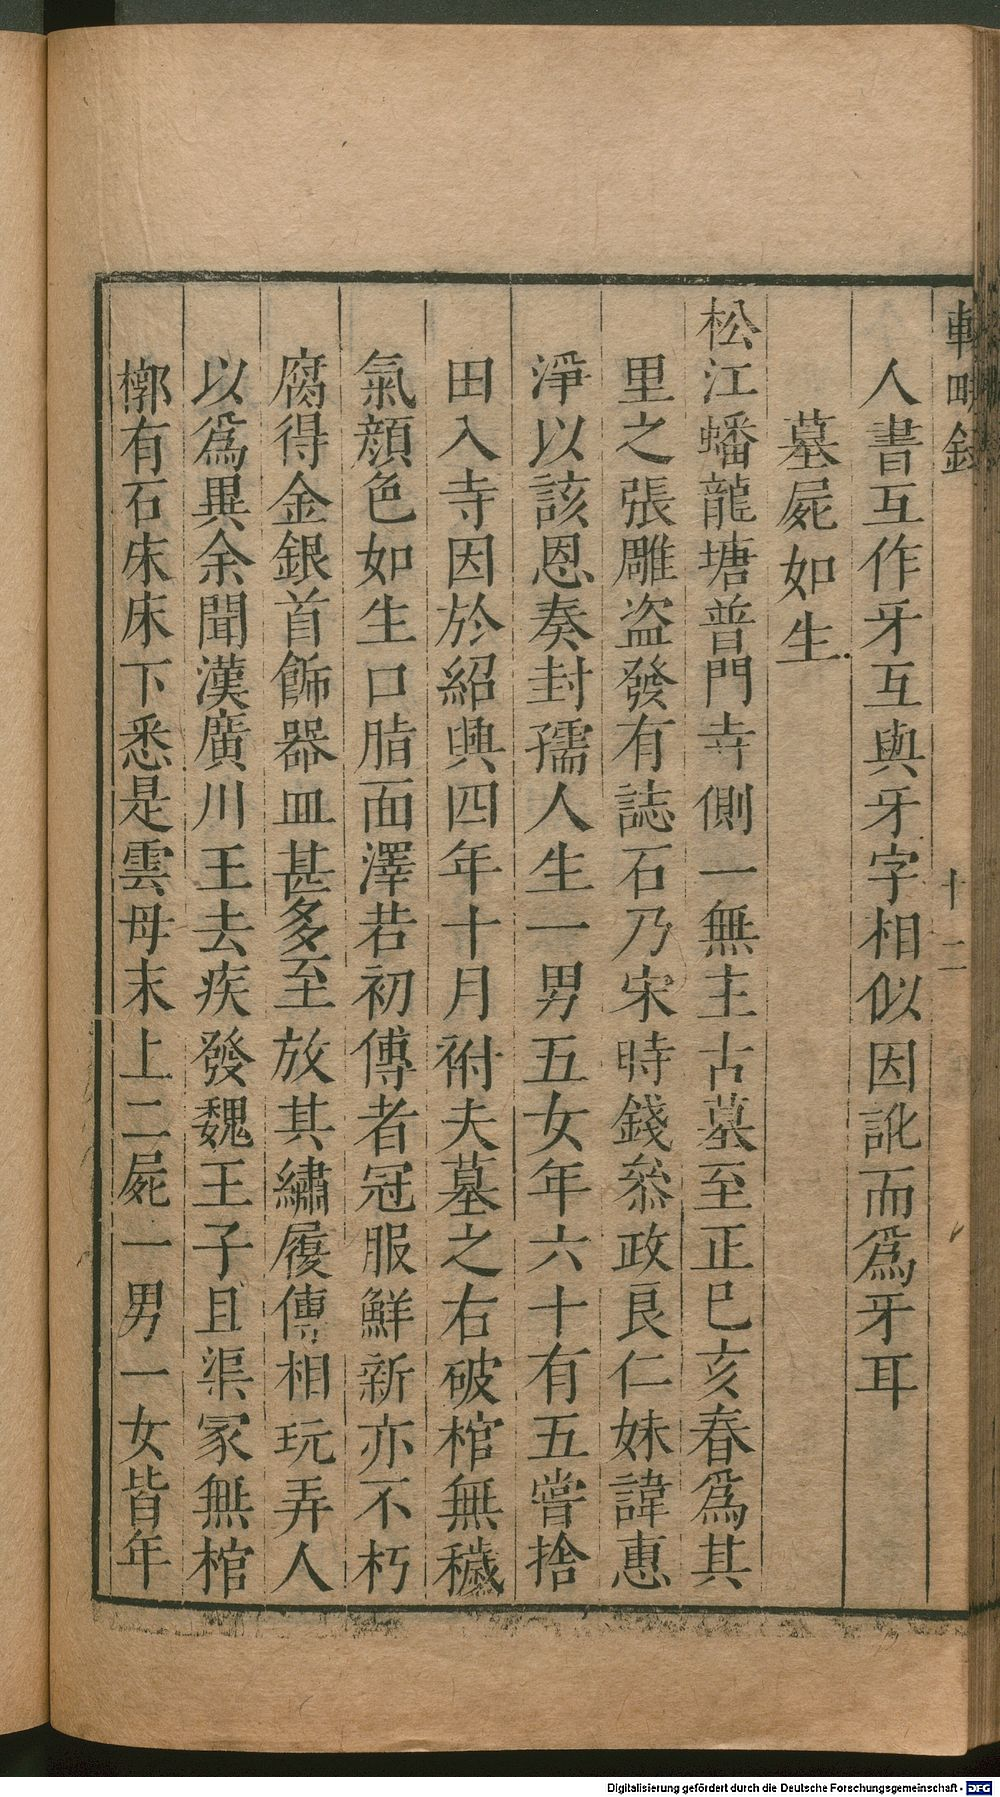 輟畊錄 十二
人書互作牙互與牙字相似因訛而爲牙耳
墓屍如生
松江蟠龍塘普門寺側一無主古墓至正巳亥春爲其
里之張雕盜發有誌石乃宋時錢叅政良仁妹諱惠
淨以該恩奏封孺人生一男五女年六十有五嘗捨
田入寺因於紹興四年十月祔夫墓之右破棺無穢
氣顔色如生口脂面澤若初傅者冠服鮮新亦不朽
腐得金銀首飾器皿甚多至放其繡履傳相玩弄人
以爲異余聞漢廣川王去疾發魏王子且渠冢無棺
槨有石床床下悉是雲母末上二屍一男一女皆年
Digitalisierung gefördert durch die Deutsche Forschungsgemeinschaft - DFG